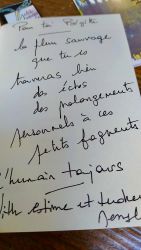 Pour toi
la fleur sauvage
que tu es
trouveras bien
des échos
des prolongements
personnels à ces
petits fragments
L'humain toujours
With estime et